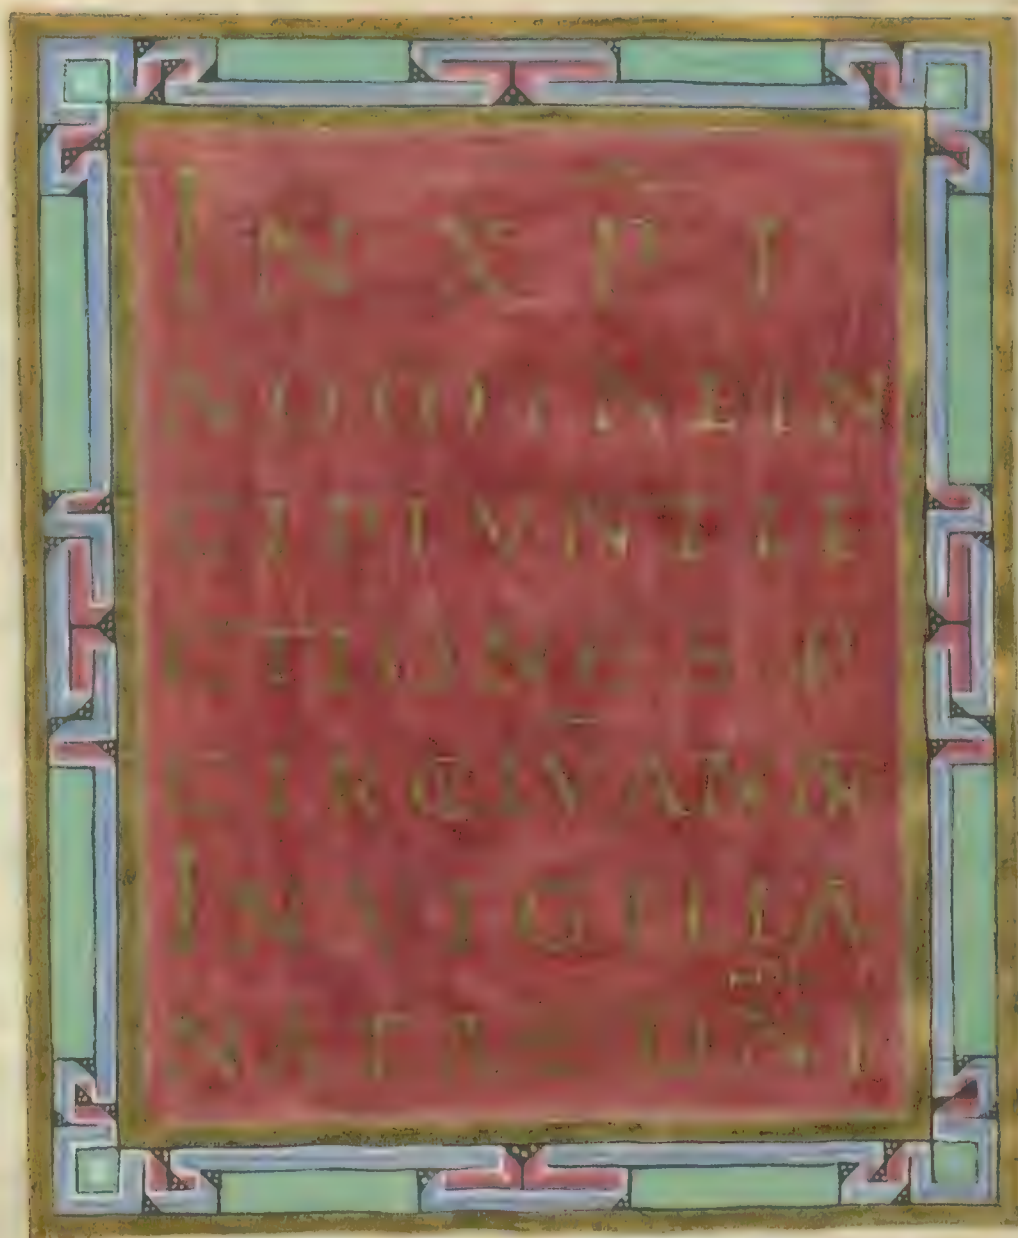 IN XPI
NOMINE IN
CIPIUNT LE
CTIONES P
CIRCULŪ ANNI
IN VIGILIA
NAT DNI